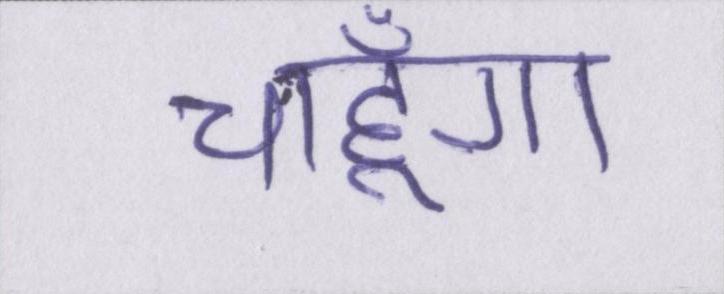 चाहूँगा